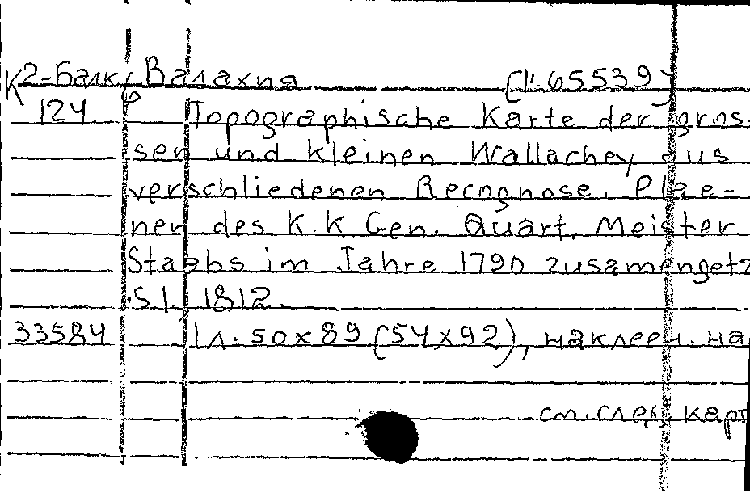 К 2-Балк. Валахия [1:655391]
124 φ Topographische Karte der gros-
sen und kleinen Wallachey aus
verschliedenen Recognose. Plae-
nen des K.K Gen. Quart. Meister
Staabs im Jahre 1790 zusamengetz
S.l. 1812.
33584 1 л. 50x89 (54x92), наклеен. на
см. след. карт